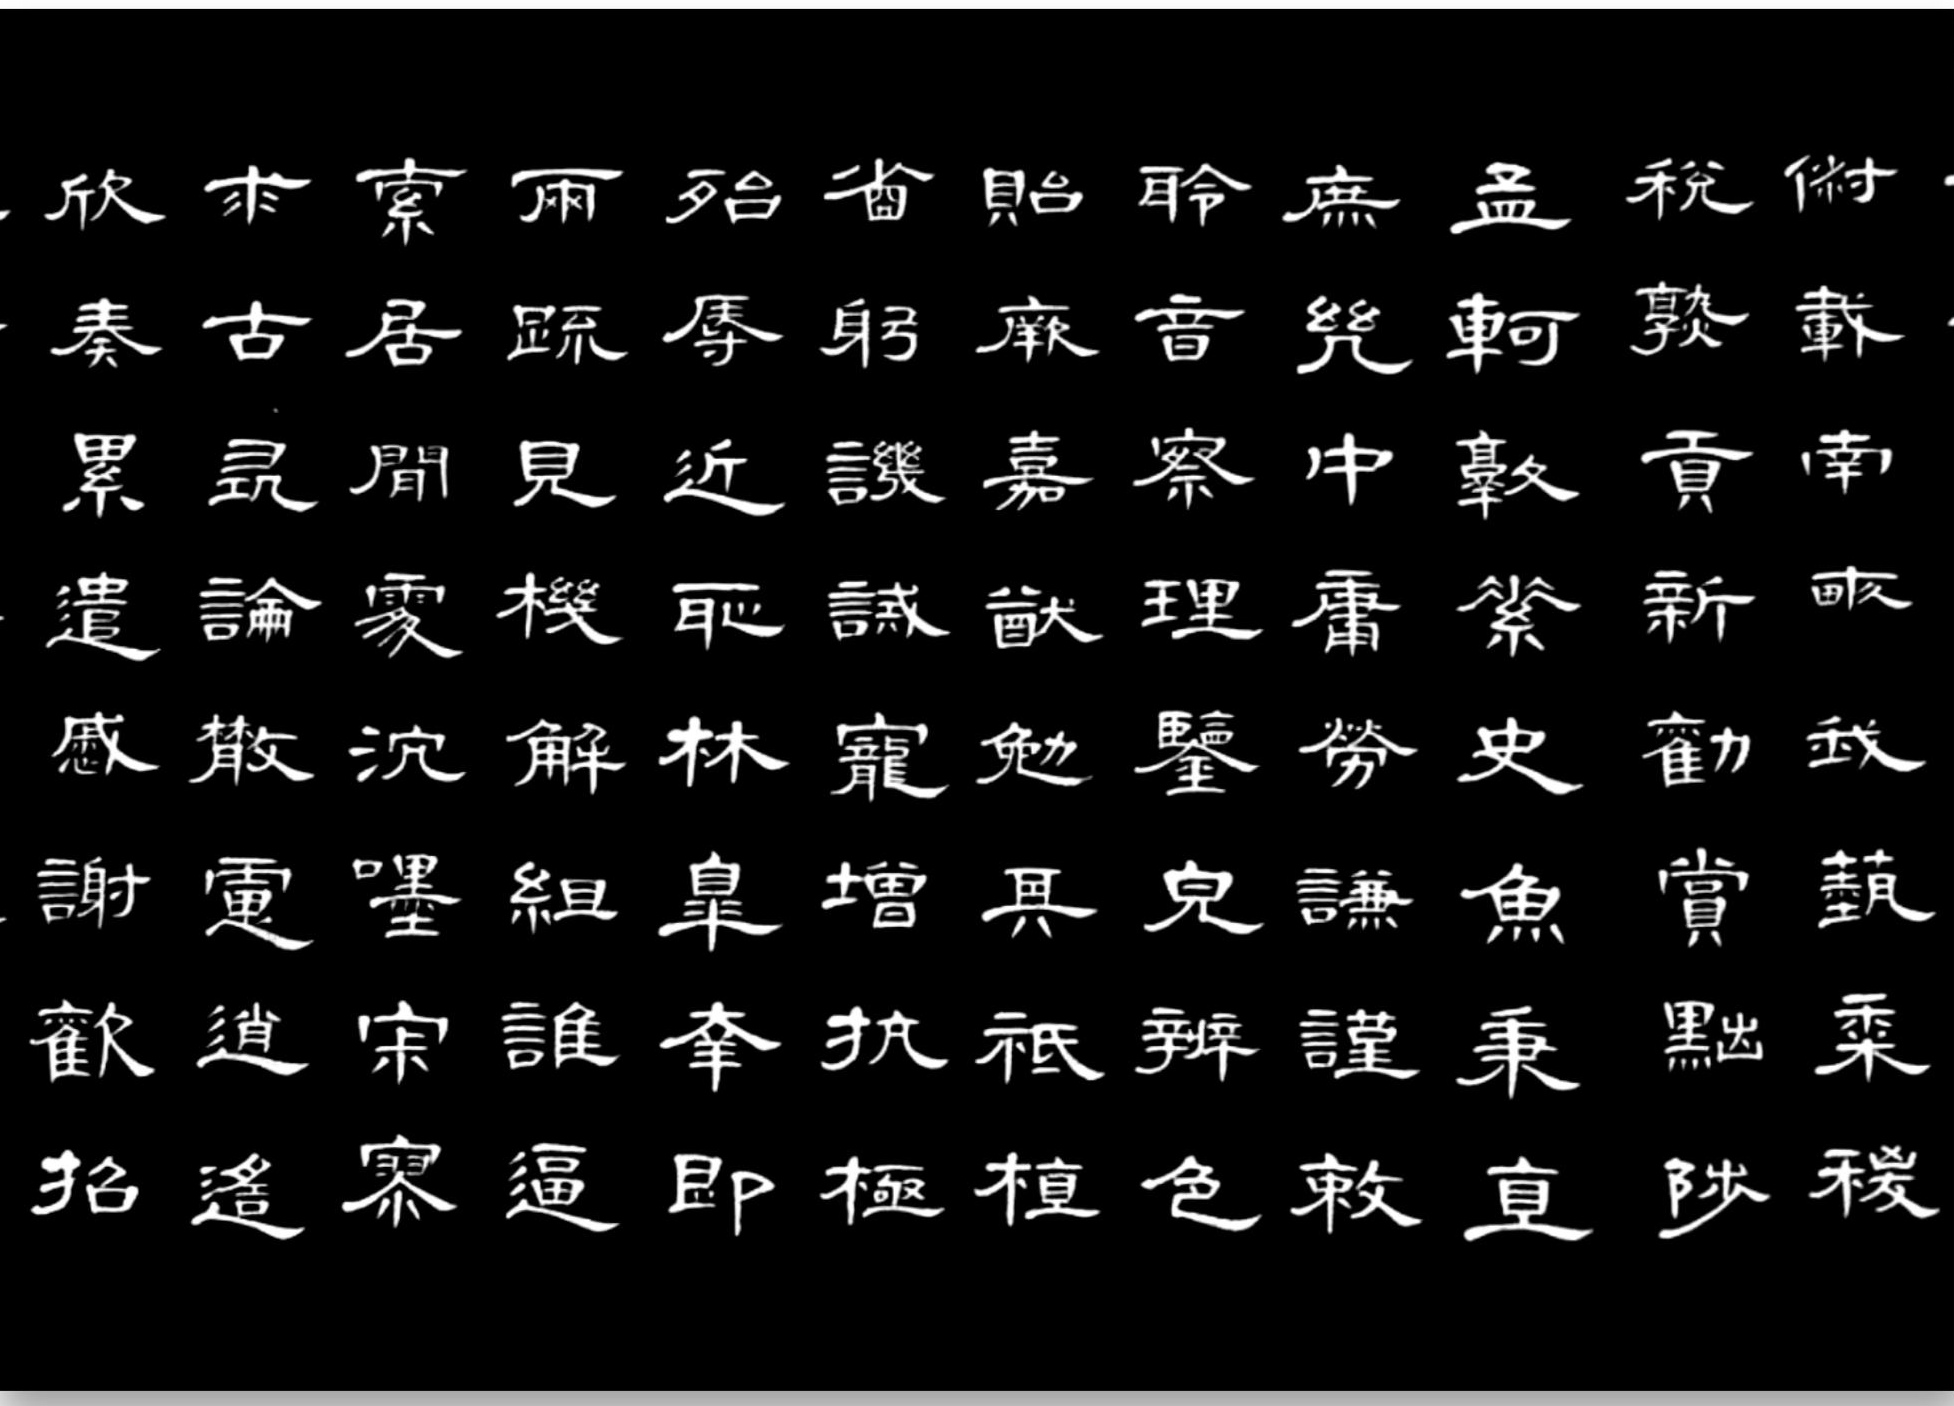 俶載南畝我藝黍稷
稅熟貢新勸賞黜陟
孟軻敦素史魚秉直
庶幾中庸勞謙謹敕
聆音察理鑒皃辨色
貽厥嘉猷勉其祗植
省躬譏誡寵增抗極
殆辱近耻林皋幸即
兩疏見機解組誰逼
索居閒處沉嘿寂寥
求古尋論散慮逍遙
欣奏累遣慼謝歡招